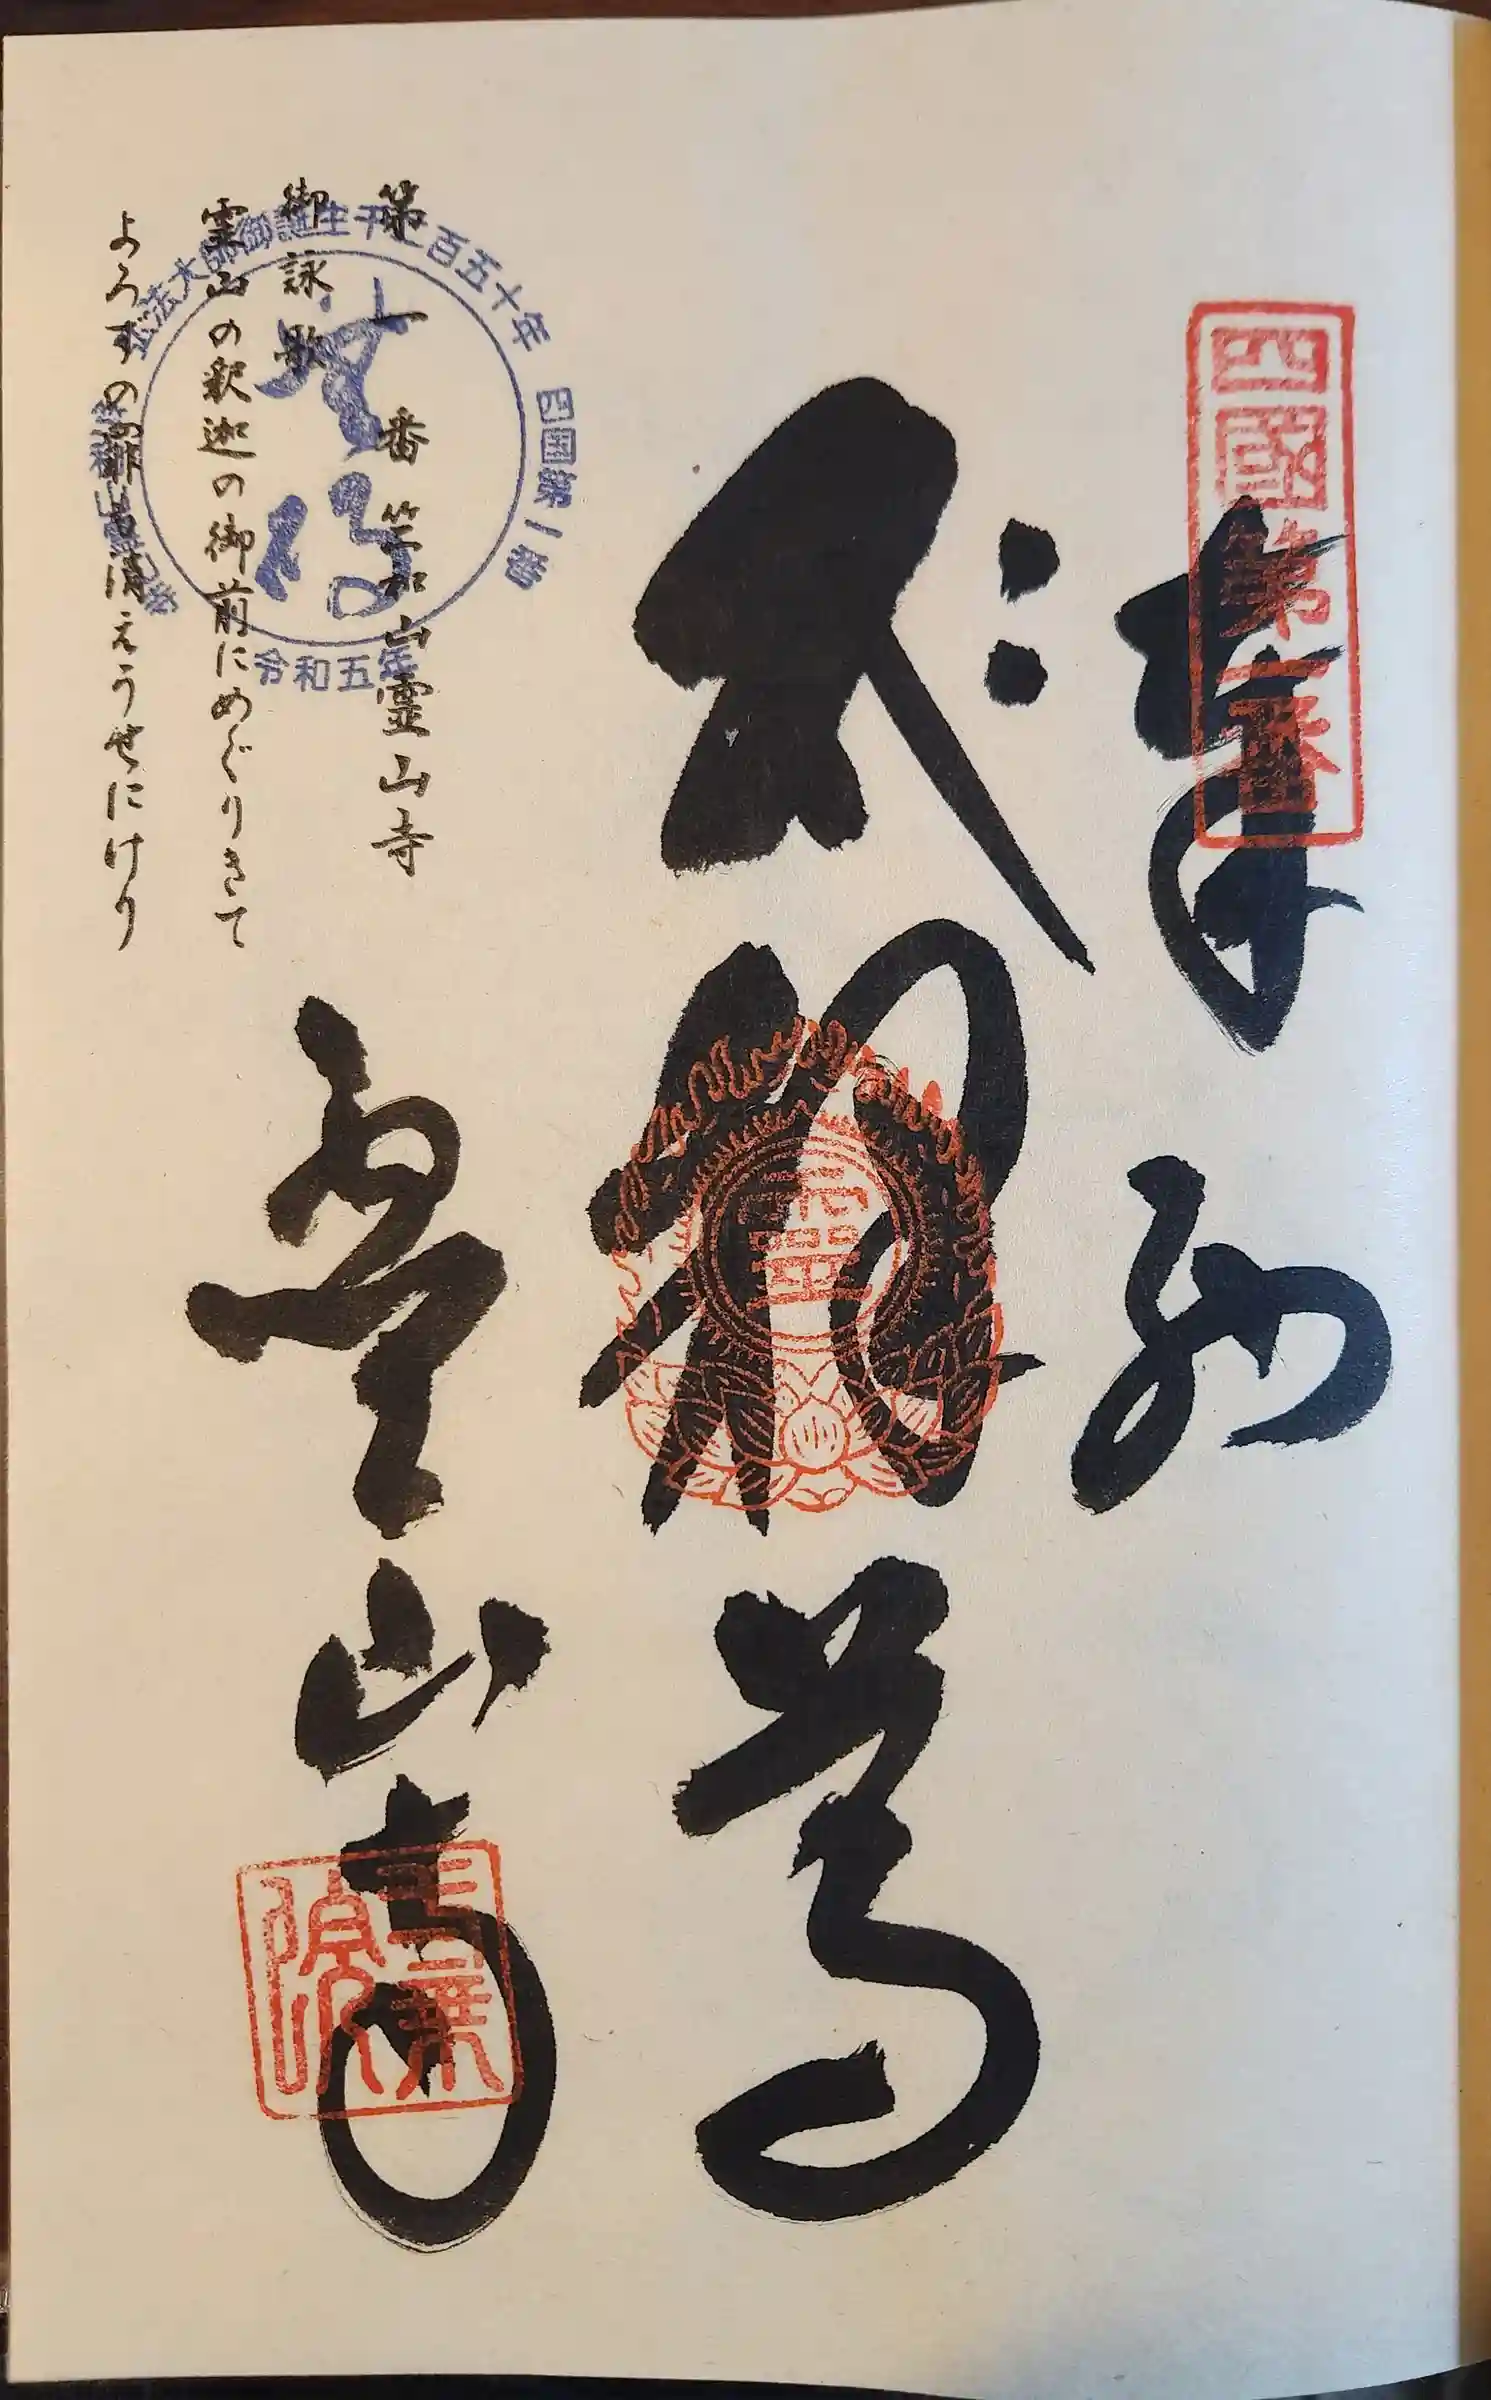 四國第一番
奉納
釈迦尊
霊
霊山寺
第一番 竺和山霊山寺
御詠歌
霊山の釈迦の御前にめぐりきて
よろずの罪も消えうせにけり
弘法大師御誕生千二百五十年
四国第一番
令和五年